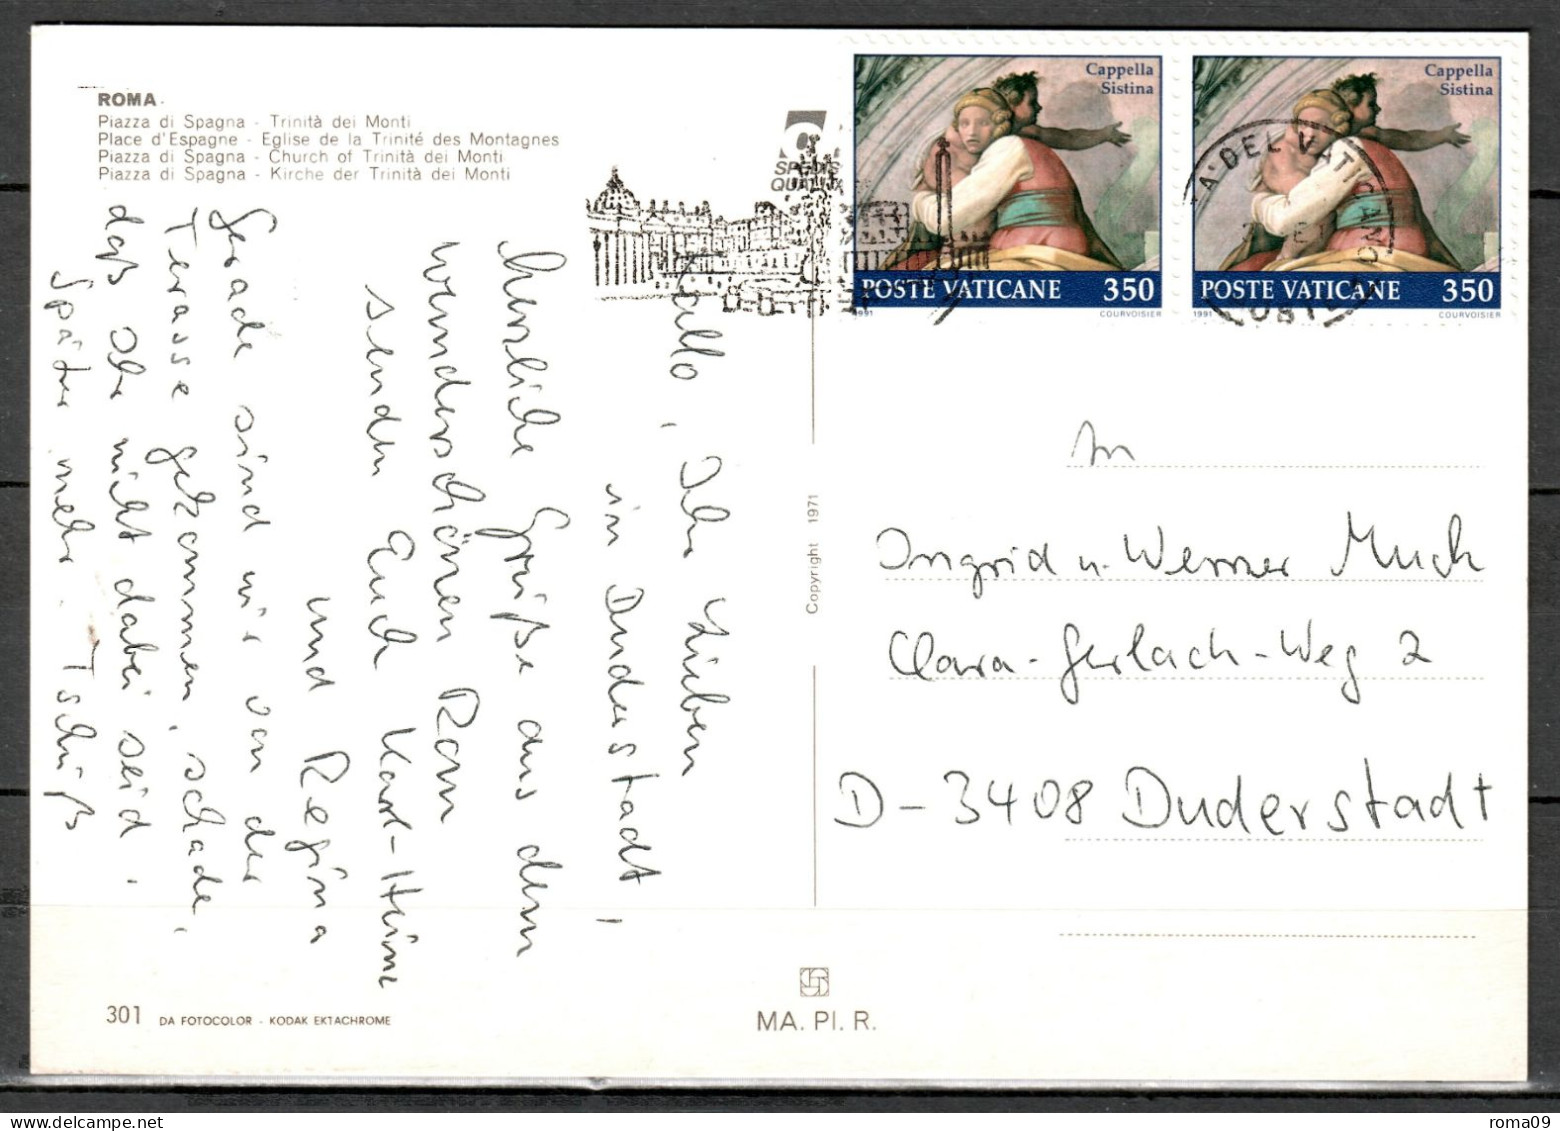 ROMA
Piazza di Spagna - Trinità dei Monti
Place d'Espagne - Eglise de la Trinité des Montagnes
Piazza di Spagna - Church of Trinità dei Monti
Piazza di Spagna - Kirche der Trinità dei Monti
Hallo, Ihr Lieben
in Duderstadt,
herzliche Grüße aus dem
wunderschönen Rom
senden Euch Karl-Heinz
und Regina
Gerade sind wir von der
Terasse gekommen, schade,
daß Ihr nicht dabei seid.
Später mehr. Tschüß
301 DA FOTOCOLOR - KODAK EKTACHROME
Copyright 1971
MA. PI. R.
Cappella
Sistina
POSTE VATICANE 350
1991 COURVOISIER
Cappella
Sistina
POSTE VATICANE 350
1991 COURVOISIER
An
Ingrid u. Werner Much
Clara-Gerlach-Weg 2
D-3408 Duderstadt
roma09